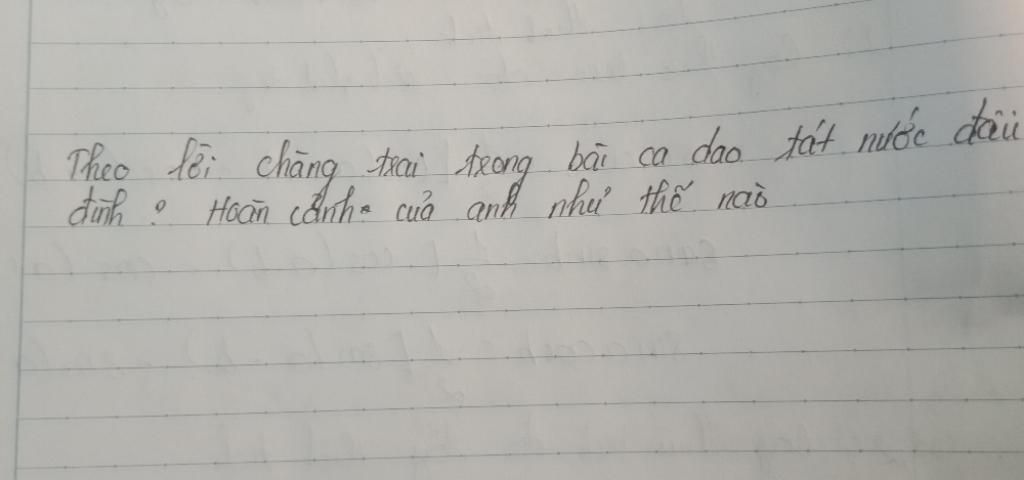 Theo lời chàng trai trong bài ca dao tát nước đầu
đình ? Hoàn cảnh của anh như thế nào